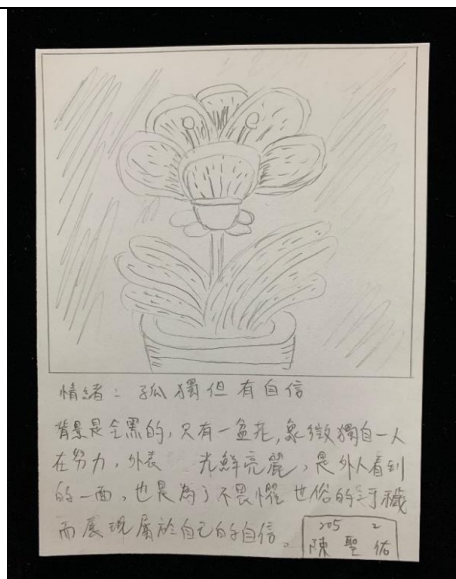 情緒：孤獨但有自信
背景是全黑的，只有一盆花，象徵獨自一人
在努力，外表 光鮮亮麗，是外人看到
的一面，也是為了不畏懼世俗的污穢
而展現屬於自己的自信。
205 2
陳聖佑